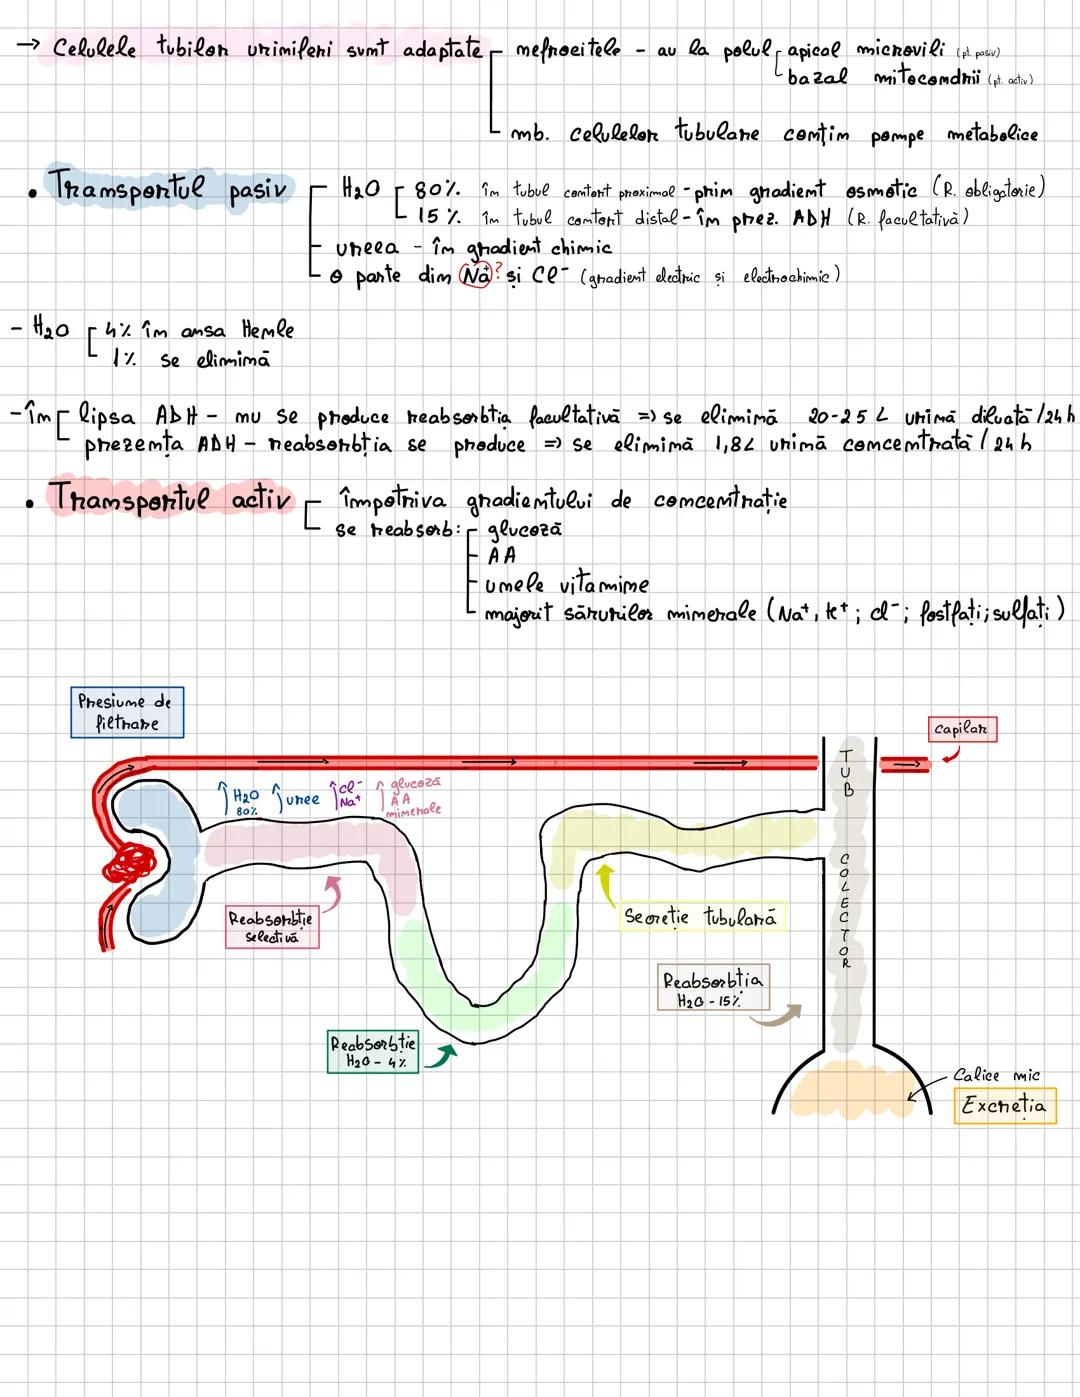 → Celulele tubilor uriniferi sunt adaptate nefrocitele - au la polul apical microvili (pt. pasiv)
bazal mitocondrii (pt. activ)
mb. celulelor tubulare conțin pompe metabolice
• Transportul pasiv H2O 80% în tubul contort proximal - prin gradient osmotic (R. obligatorie)
15% în tubul contort distal - în prez. ADH (R. facultativă)
ureea - în gradient chimic
o parte din Na+? și Cl- (gradient electric și electrochimic)
- H2O 4% în ansa Henle
1% se elimină
- în lipsa ADH - nu se produce reabsorbția facultativă => se elimină 20-25 L urină diluată /24h
prezența ADH - reabsorbția se produce => se elimină 1,8L urină concentrată / 24h
• Transportul activ împotriva gradientului de concentrație
se reabsorb: glucoză
AA
unele vitamine
majorit sărurilor minerale (Na+, K+; Cl-; fosfați; sulfați)
Presiune de
filtrare
capilar
TUB COLECTOR
↑ H2O 80% ↑ uree ↑ Cl- Na+ ↑ glucoză AA minerale
Reabsorbție
selectivă
Secreție tubulară
Reabsorbția
H2O - 15%
Reabsorbție
H2O - 4%
Calice mic
Excreția